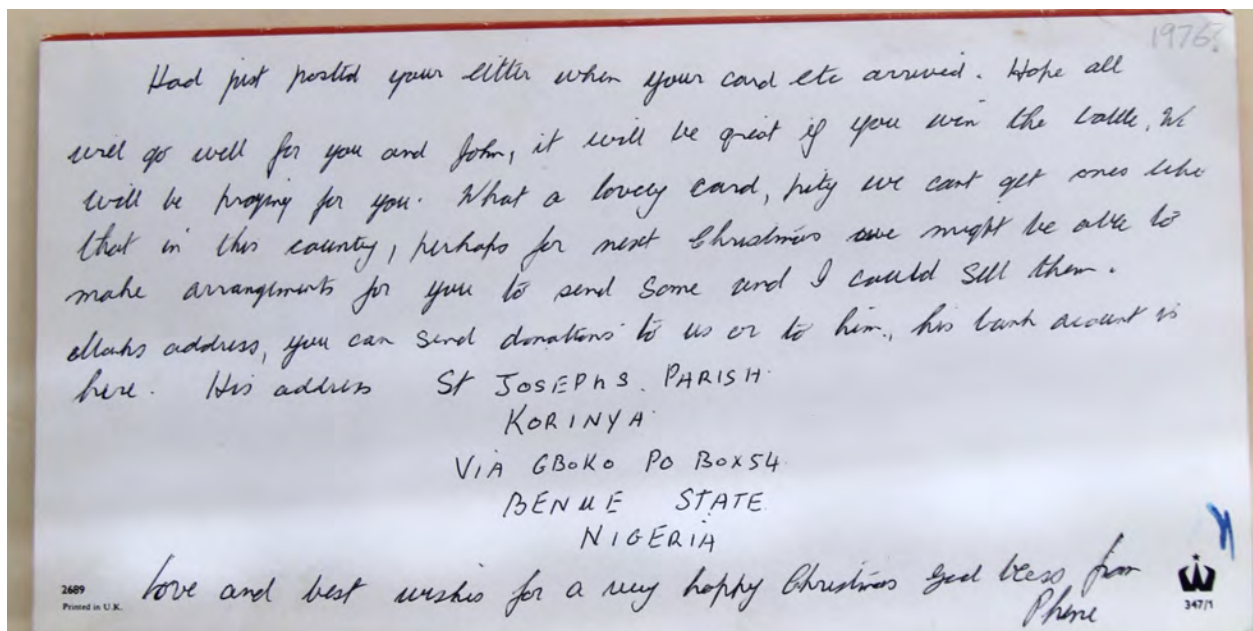 1976?
Had just posted your letter when your card etc arrived. Hope all
will go well for you and John, it will be great if you win the battle, We
will be praying for you. What a lovely card, pity we cant get ones like
that in this country, perhaps for next Christmas we might be able to
make arrangements for you to send some and I could sell them.
Marks address, you can send donations to us or to him, his bank acount is
here. His address St JOSEPHS. PARISH.
KORINYA.
VIA GBOKO PO BOX 54.
BENUE STATE.
NIGERIA
Love and best wishes for a very happy Christmas God bless, from
2689
Printed in U.K.
347/1